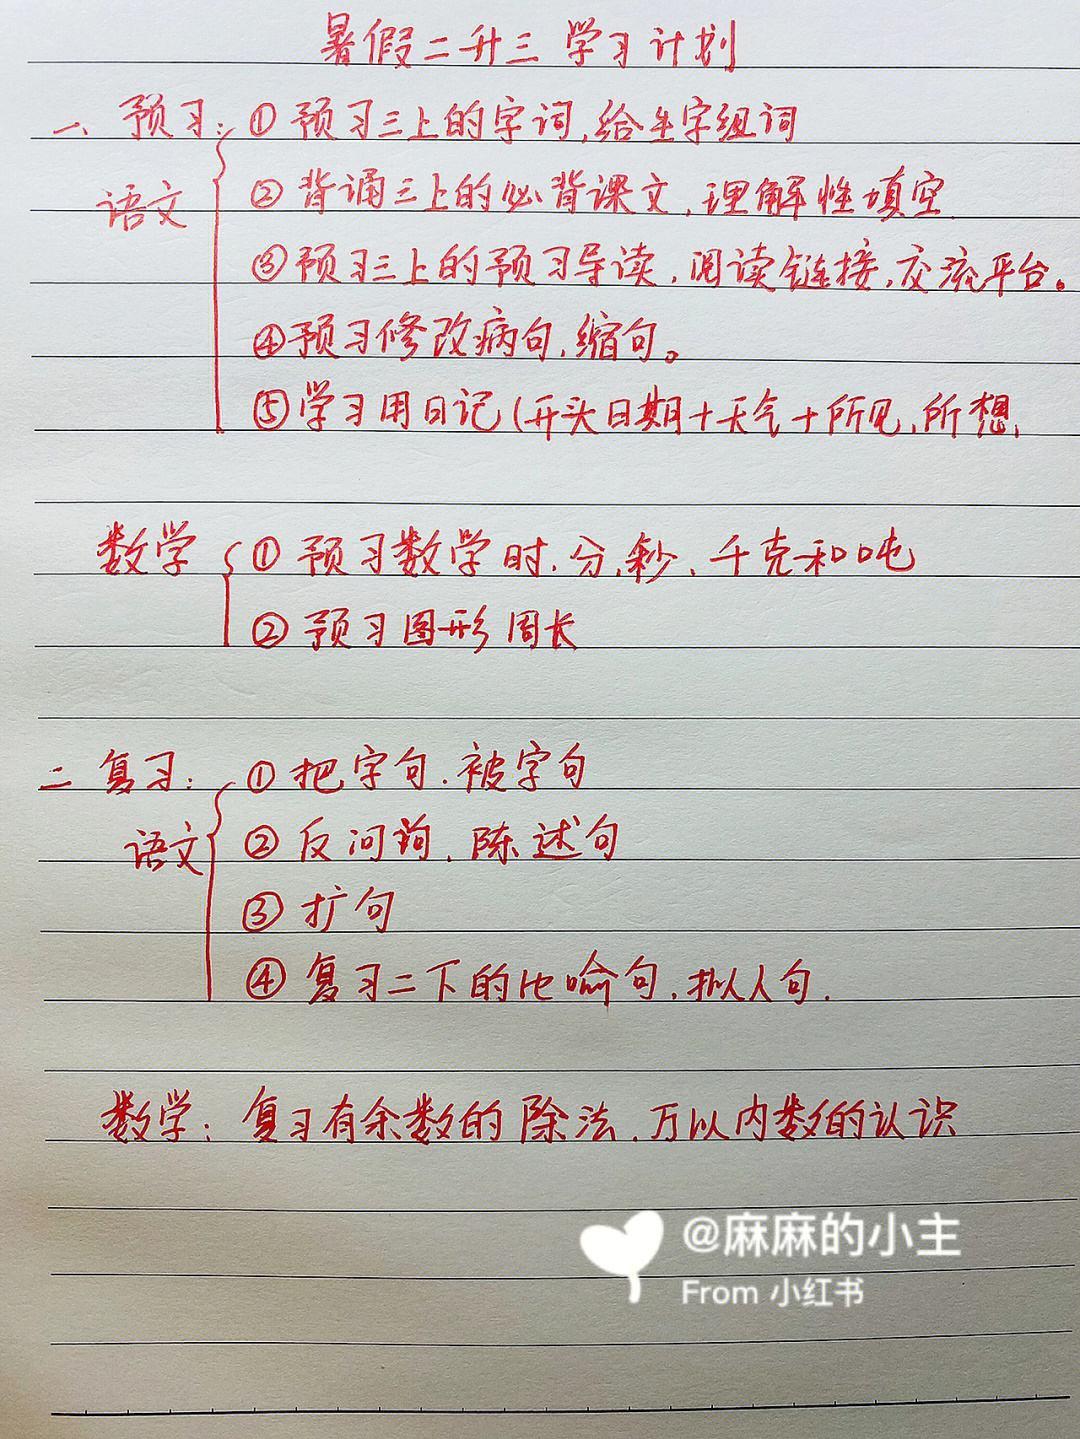 暑假二升三 学习计划
一、预习：①预习三上的字词,给生字组词
语文
②背诵三上的必背课文,理解性填空
③预习三上的预习导读,阅读链接,交流平台。
④预习修改病句,缩句。
⑤学习用日记(开头日期+天气+所见,所想,
数学 ①预习数学时、分、秒、千克和吨
②预习图形周长
二 复习：①把字句.被字句
语文
②反问句、陈述句
③扩句
④复习二下的比喻句,拟人句.
数学：复习有余数的除法,万以内数的认识
@麻麻的小主
From 小红书